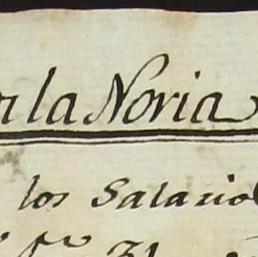 la Noria
los Salario
31